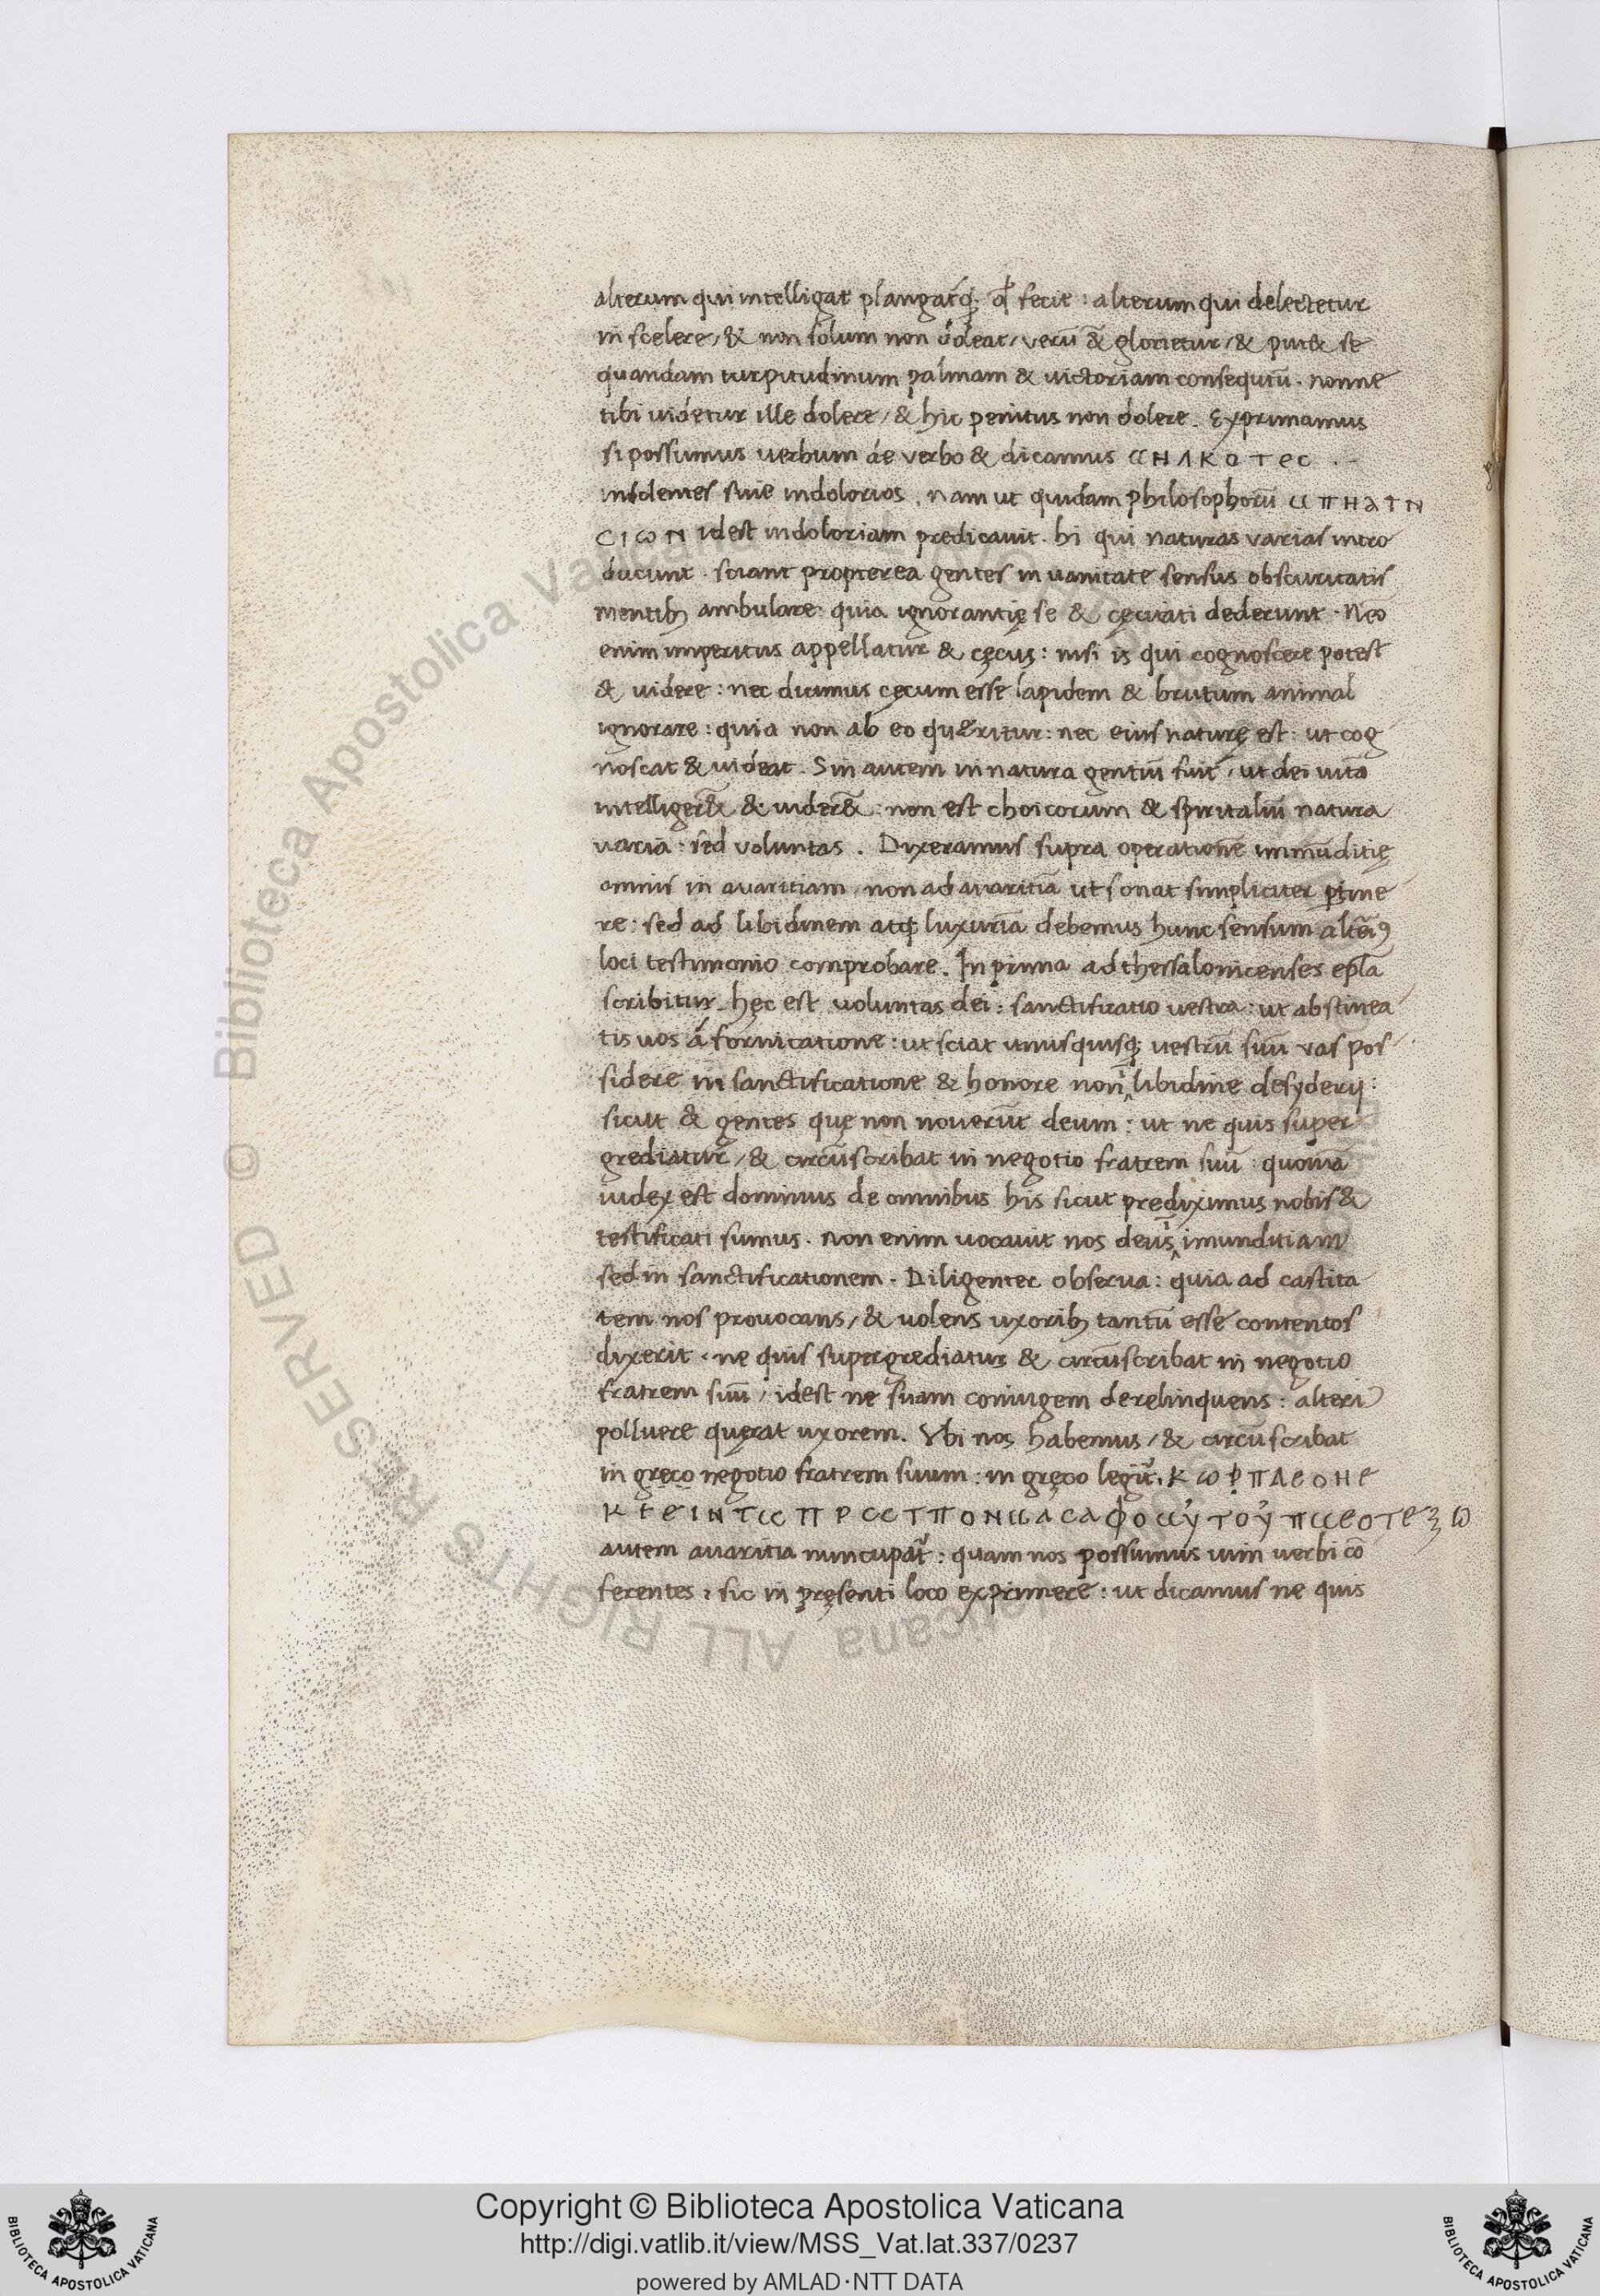 alterum qui intelligat plangatq; qď fecit: alterum qui delectetur
in scelere, & non solum non doleat, verū & glorietur, & put& se
quandam turpitudinum palmam & uictoriam consequtū. nonne
tibi uidetur ille dolere, & hic penitus non dolere. Exprimamus
si possumus verbum de verbo & dicamus
indolentes siue indolorios. nam ut quidam philosophorū
idest indoloriam predicauit. hi qui naturas varias intro
ducunt. sciant propterea gentes in uanitate sensus obscuritatis
mentibꝫ ambulare: quia ignorantię se & cęcitati dederunt. Neo
enim imperitus appellatur & cęcus: nisi is qui cognoscere potest
& uidere: nec dicimus cęcum esse lapidem & brutum animal
ignorare: quia non ab eo queritur: nec eius naturę est: ut cog
noscat & uideat. Sin autem in natura gentiū fuit, ut dei uitā
intelliger& & uider&: non est choicorum & spiritaliū natura
varia: sed voluntas. Dixeramus supra operationē immūditię
omnis in auaritiam, non ad auaritiā ut sonat simpliciter ptine
re: sed ad libidinem atq; luxuriā debemus hunc sensum altēiꝰ
loci testimonio comprobare. In prima ad thessalonicenses epľa
scribitur. hęc est voluntas dei: sanctificatio uestra: ut abstinea
tis uos á fornicatione: ut sciat unusquisq; uestrū suū vas pos
sidere in sanctificatione & honore non ī libidine desyderij:
sicut & gentes quę non nouerūt deum: ut ne quis super
grediatur, & circūscribat in negotio fratrem suū: quoniā
iudex est dominus de omnibus his sicut prediximus nobis &
testificati sumus. non enim uocauit nos deus ī imunditiam
sed in sanctificationem. Diligenter obserua: quia ad castita
tem nos prouocans, & uolens uxoribꝫ tantū esse contentos
dixerit. ne quis supergrediatur & circūscribat in negotio
fratrem suū, idest ne suam coniugem derelinquens: alteri
polluere quęrat uxorem. Vbi nos habemus, & circūscribat
in gręco negotio fratrem suum: in gręco legit̄. κ ω ρ π λ ε ο ν ε
autem auaritia nuncupat̄: quam nos possumus uim uerbi cō
ferentes: sic in pręsenti loco exprimere: ut dicamus ne quis
Copyright © Biblioteca Apostolica Vaticana
http://digi.vatlib.it/view/MSS_Vat.lat.337/0237
powered by AMLAD·NTT DATA